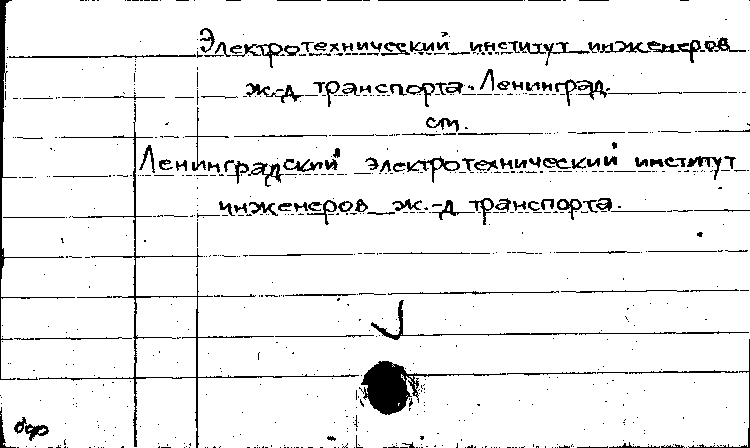 Электротехнический институт инженеров
ж.-д транспорта. Ленинград.
см.
Ленинградский электротехнический институт
инженеров ж.-д транспорта.